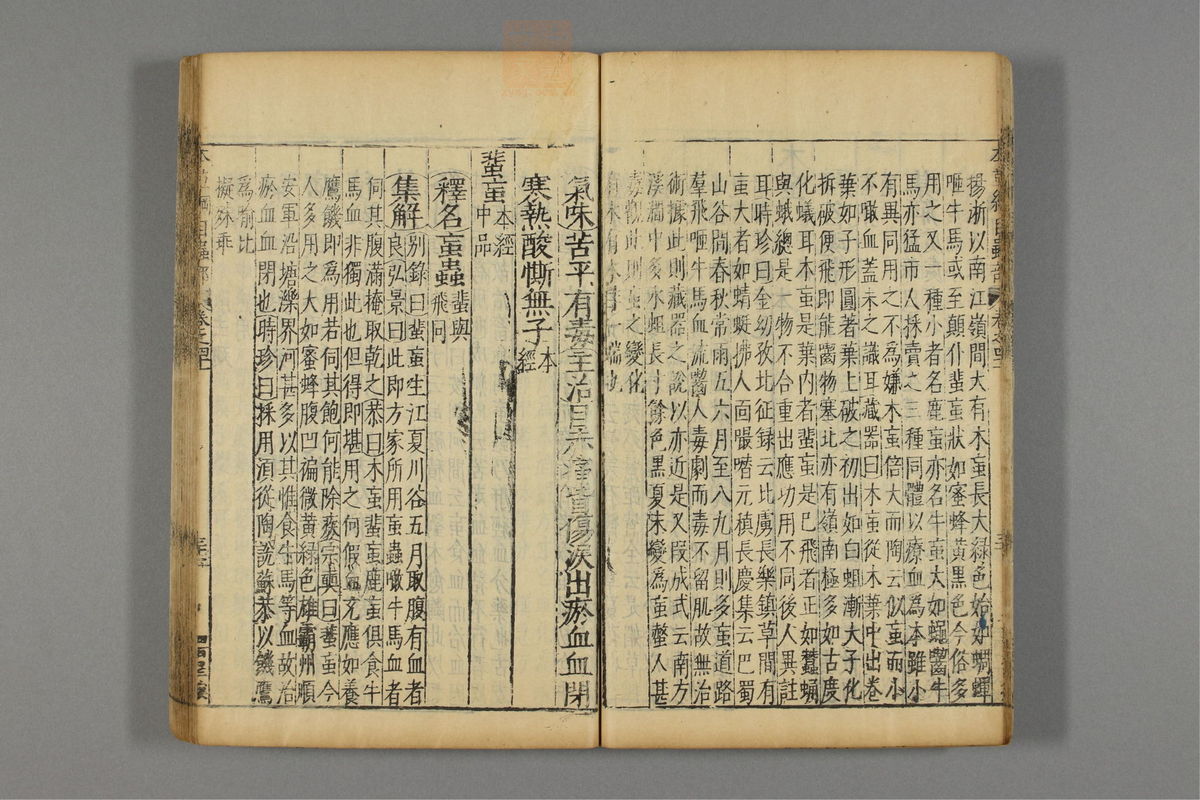 揚浙以南江嶺間大有木蝱長大綠色始如蜩蟬
咂牛馬或至顛仆蜚蝱狀如蜜蜂黃黑色今俗多
用之又一種小者名鹿蝱亦名牛蝱大如蠅齧牛
馬亦猛市人採賣之三種同體以療血為本雖小
有異同用之不為嫌木蝱倍大而陶云似蝱而小
不噉血蓋未之識耳藏器曰木蝱從木葉中出卷
葉如子形圓著葉上破之初出如白蛆漸大子化
拆破便飛即能齧物塞北亦有嶺南極多如古度
化蟻耳木蝱是葉內者蜚蝱是已飛者正如蠶蛹
與蛾總是一物不合重出應功用不同後人異註
耳時珍曰金幼孜北征録云北虜長樂鎮草間有
蝱大者如蜻蜓拂人面嘬噆元稹長慶集云巴蜀
山谷間春秋常雨五六月至八九月則多蝱道路
羣飛咂牛馬血流齧人毒劇而毒不留肌故無治
術據此則藏器之說以亦近是又段成式云南方
溪澗中多水蛆長寸餘色黑夏末變為蝱螫人甚
毒觀此則蝱之變化
有木有
氣味苦平有毒主治目赤痛眥傷淚出瘀血血閉
寒熱酸㾷無子本經
蜚蝱本經中品
釋名蝱蟲蜚與飛同
集解別錄曰蜚蝱生江夏川谷五月取腹有血者
良弘景曰此即方家所用蝱蟲噉牛馬血者
伺其腹滿掩取乾之恭曰木蝱蜚蝱鹿蝱俱食牛
馬血非獨此也但得即堪用之何假血充應如養
鷹饑即為用若伺其飽何能除疾宗奭曰蜚蝱今
人多用之大如蜜蜂腹凹褊微黃綠色雄霸州順
安軍沿塘濼界河甚多以其惟食牛馬等血故治
瘀血血閉也時珍曰採用須從陶說蘇恭以饑鷹
為喻比
擬殊乖